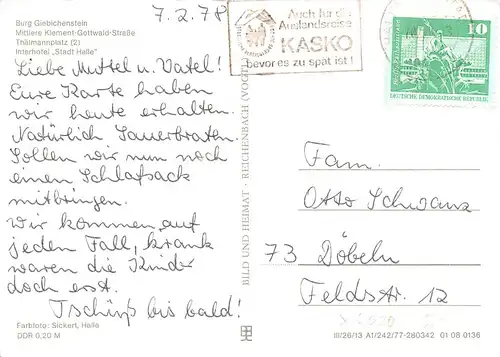 Burg Giebichenstein
Mittlere Klement-Gottwald-Straße
Thälmannplatz (2)
Interhotel „Stadt Halle"
7.2.78
Auch für die
Auslandsreise
KASKO
bevor es zu spät ist!
10
DEUTSCHE DEMOKRATISCHE REPUBLIK
Liebe Muttel u. Vatel!
Eure Karte haben
wir heute erhalten.
Natürlich Sauerbraten.
Sollen wir nun noch
einen Schlafsack
mitbringen.
Wir kommen auf
jeden Fall, krank
waren die Kinder
doch erst.
Tschüß bis bald!
Farbfoto: Sickert, Halle
DDR 0,20 M
BILD UND HEIMAT · REICHENBACH (VOGTL)
Fam.
Otto Schwanz
73 Döbeln
Feldstr. 12
III/26/13 A1/242/77-280342 01 08 0136